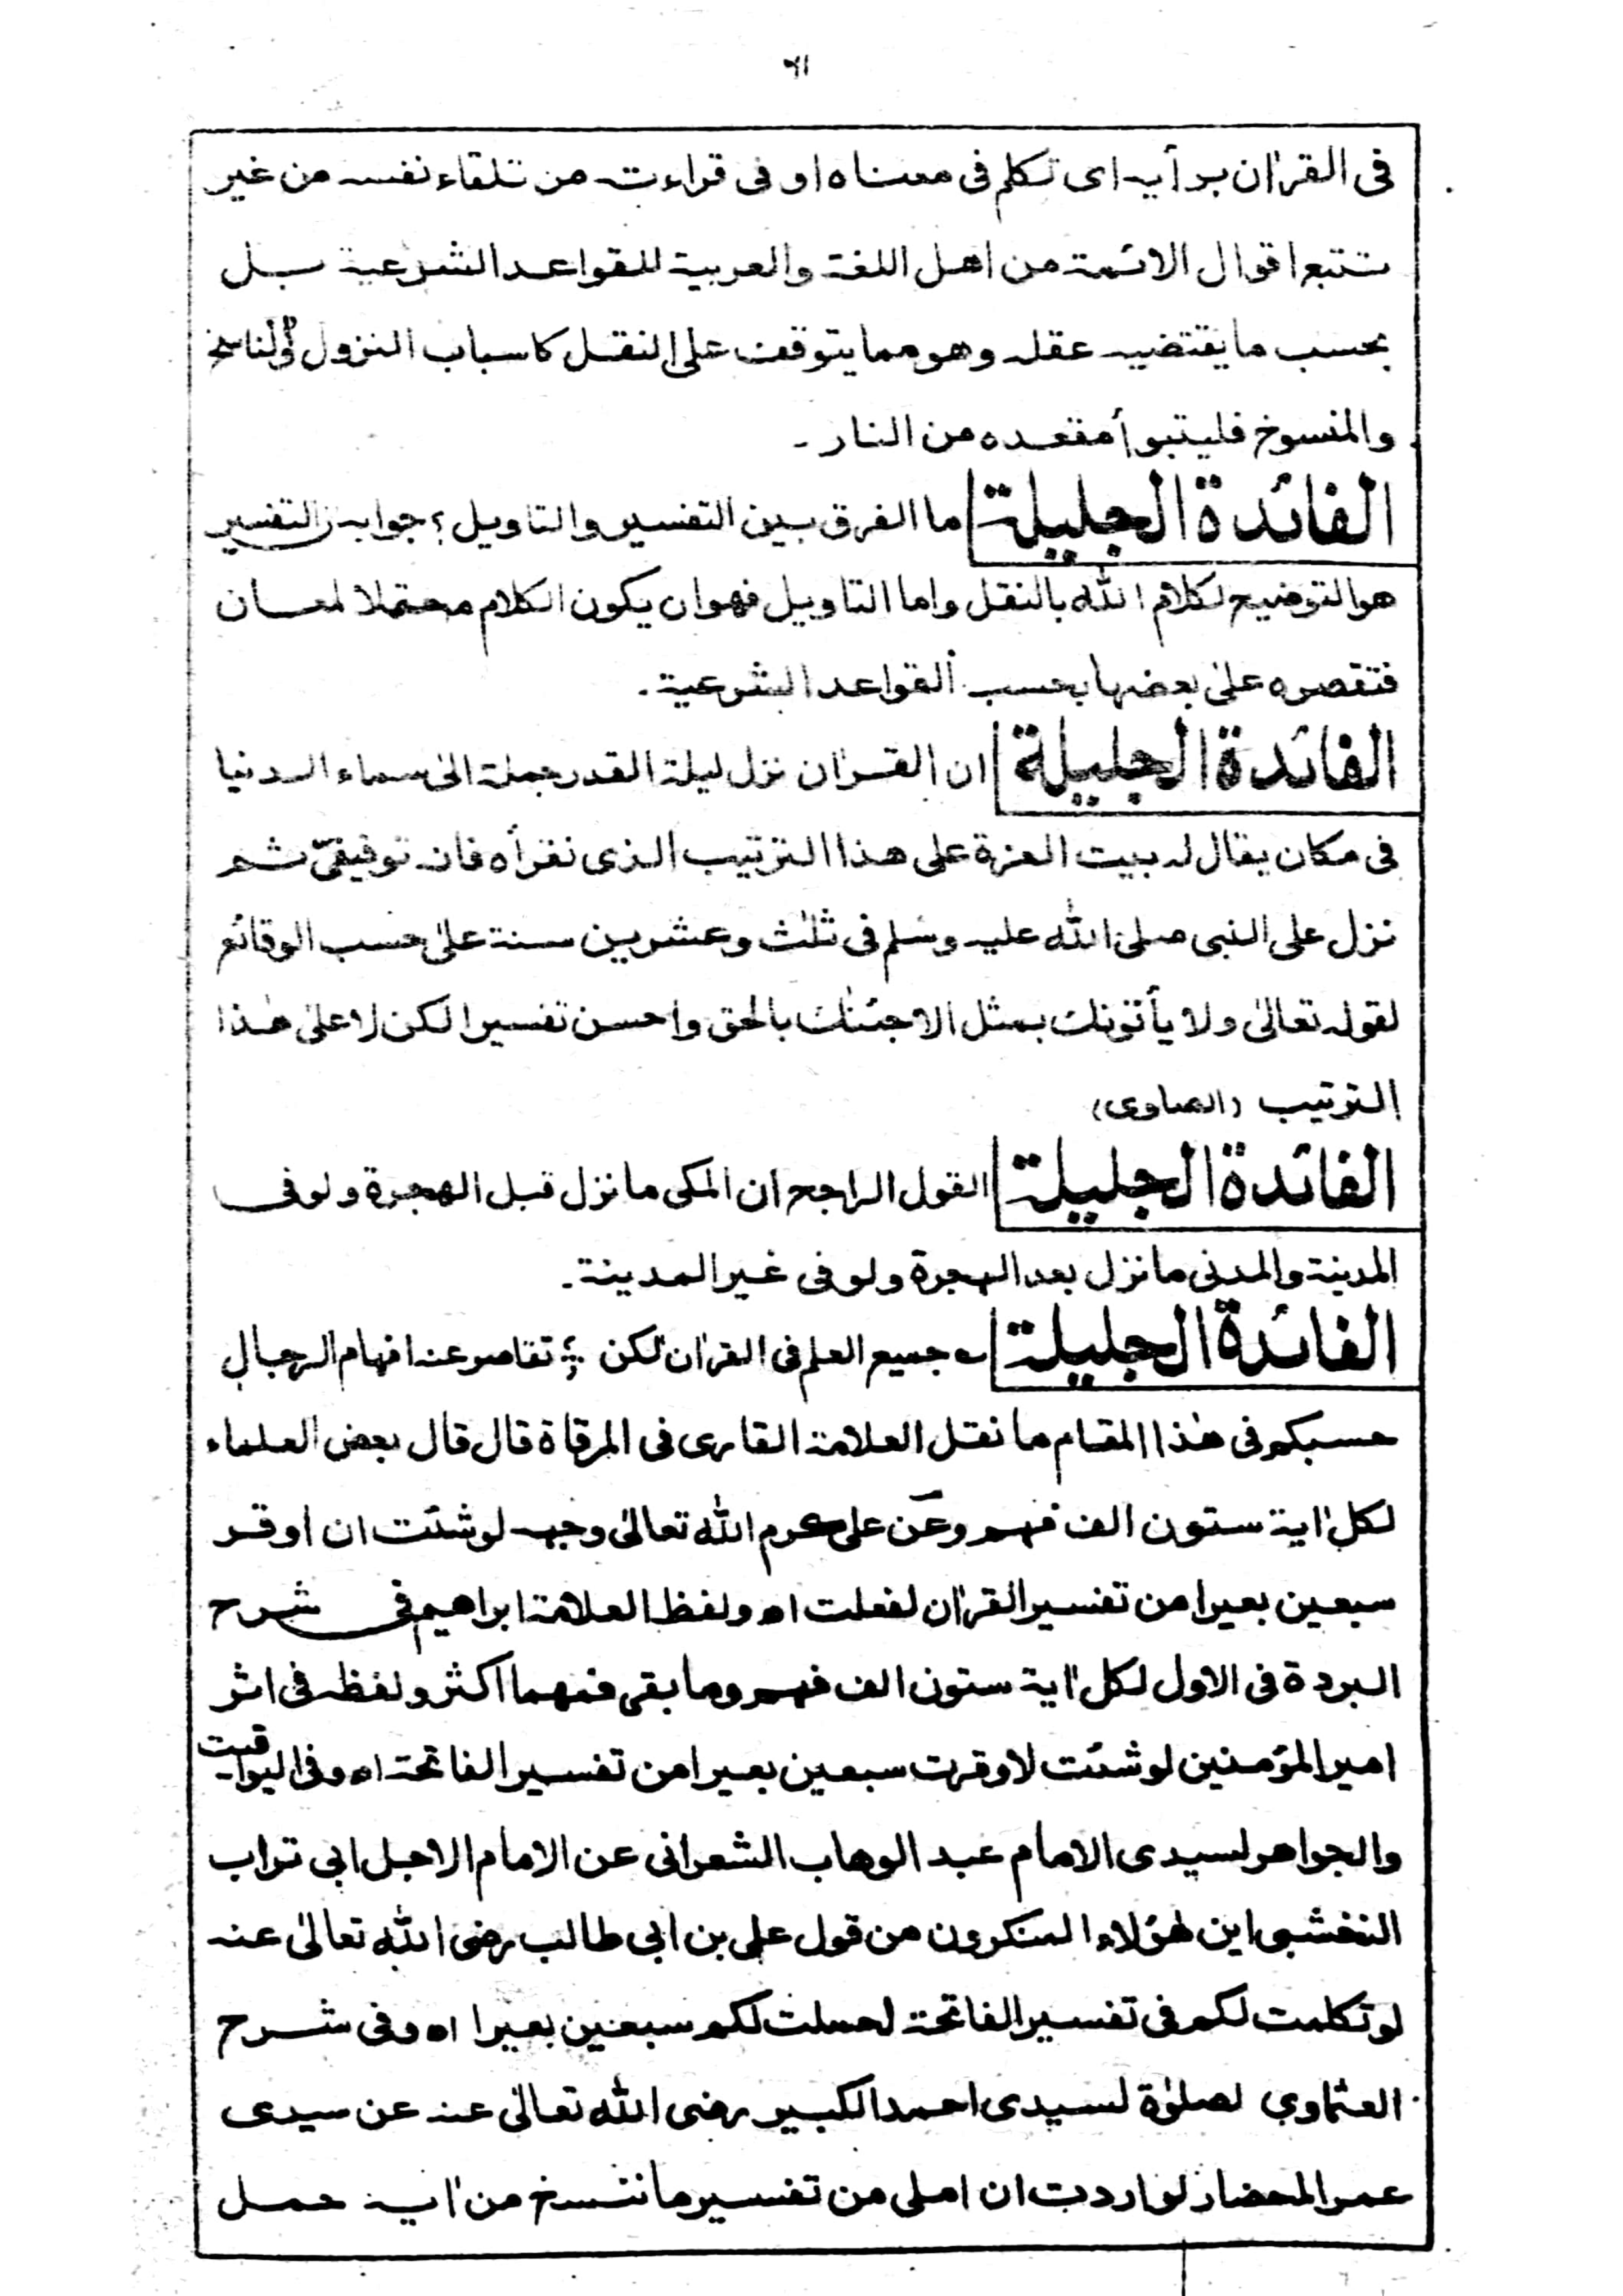 في القرآن برأيه اى تكلم فى معناه او فى قراءته من تلقاء نفسه من غير
تتبع اقوال الائمة من اهل اللغة والعربية للقواعد الشرعية بل
بحسب ما يقتضيه عقله وهو مما يتوقف على النقل كاسباب النزول والناسخ
والمنسوخ فليتبوأ مقعده من النار۔
الفائدة الجليلة ما الفرق بين التفسير والتاويل؟ جوابه: التفسير
هو التوضيح لكلام الله بالنقل واما التاويل فهو ان يكون الكلام محتملا لمعان
فتقصره على بعضها بحسب القواعد الشرعية۔
الفائدة الجليلة ان القران نزل ليلة القدر جملة الى سماء الدنيا
فى مكان يقال له بيت العزة على هذا الترتيب الذى نقرأه فانه توفيقىّ ثم
نزل على النبى صلى الله عليه وسلم فى ثلٰث وعشرين سنة على حسب الوقائع
لقوله تعالىٰ ولا يأتونك بمثل الا جئنٰك بالحق واحسن تفسيرا لكن لا على هٰذا
الترتيب (الصاوى)
الفائدة الجليلة القول الراجح ان المكى ما نزل قبل الهجرة ولو فى
المدينة والمدنى ما نزل بعد الهجرة ولو فى غير المدينة۔
الفائدة الجليلة ؎ جميع العلم فى القراٰن لكن ؛ تقاصر عنه افهام الرجال
حسبكم فى هٰذا المقام ما نقل العلامة القارى فى المرقاة قال قال بعض العلماء
لكل اٰية ستون الف فهم وعن على كرم الله تعالىٰ وجهه لو شئت ان اوقر
سبعين بعيرا من تفسير القراٰن لفعلت اه ولفظ العلامة ابراهيم فى شرح
البردة فى الاول لكل اٰية ستون الف فهم وما بقى فهمها اكثر ولفظه فى اثر
امير المؤمنين لو شئت لاوقرت سبعين بعيرا من تفسير الفاتحة اه وفى اليواقيت
والجواهر لسيدى الامام عبد الوهاب الشعرانى عن الامام الاجل ابى تراب
النخشبى اين هٰؤلاء المنكرون من قول على بن ابى طالب رضى الله تعالىٰ عنه
لو تكلمت لكم فى تفسير الفاتحة لحملت لكم سبعين بعيرا اه وفى شرح
العثماوي لصلوٰة لسيدى احمد الكبير رضى الله تعالىٰ عنه عن سيدى
عمر المحضار لو اردت ان املى من تفسير ما ننسخ من اٰية حمل